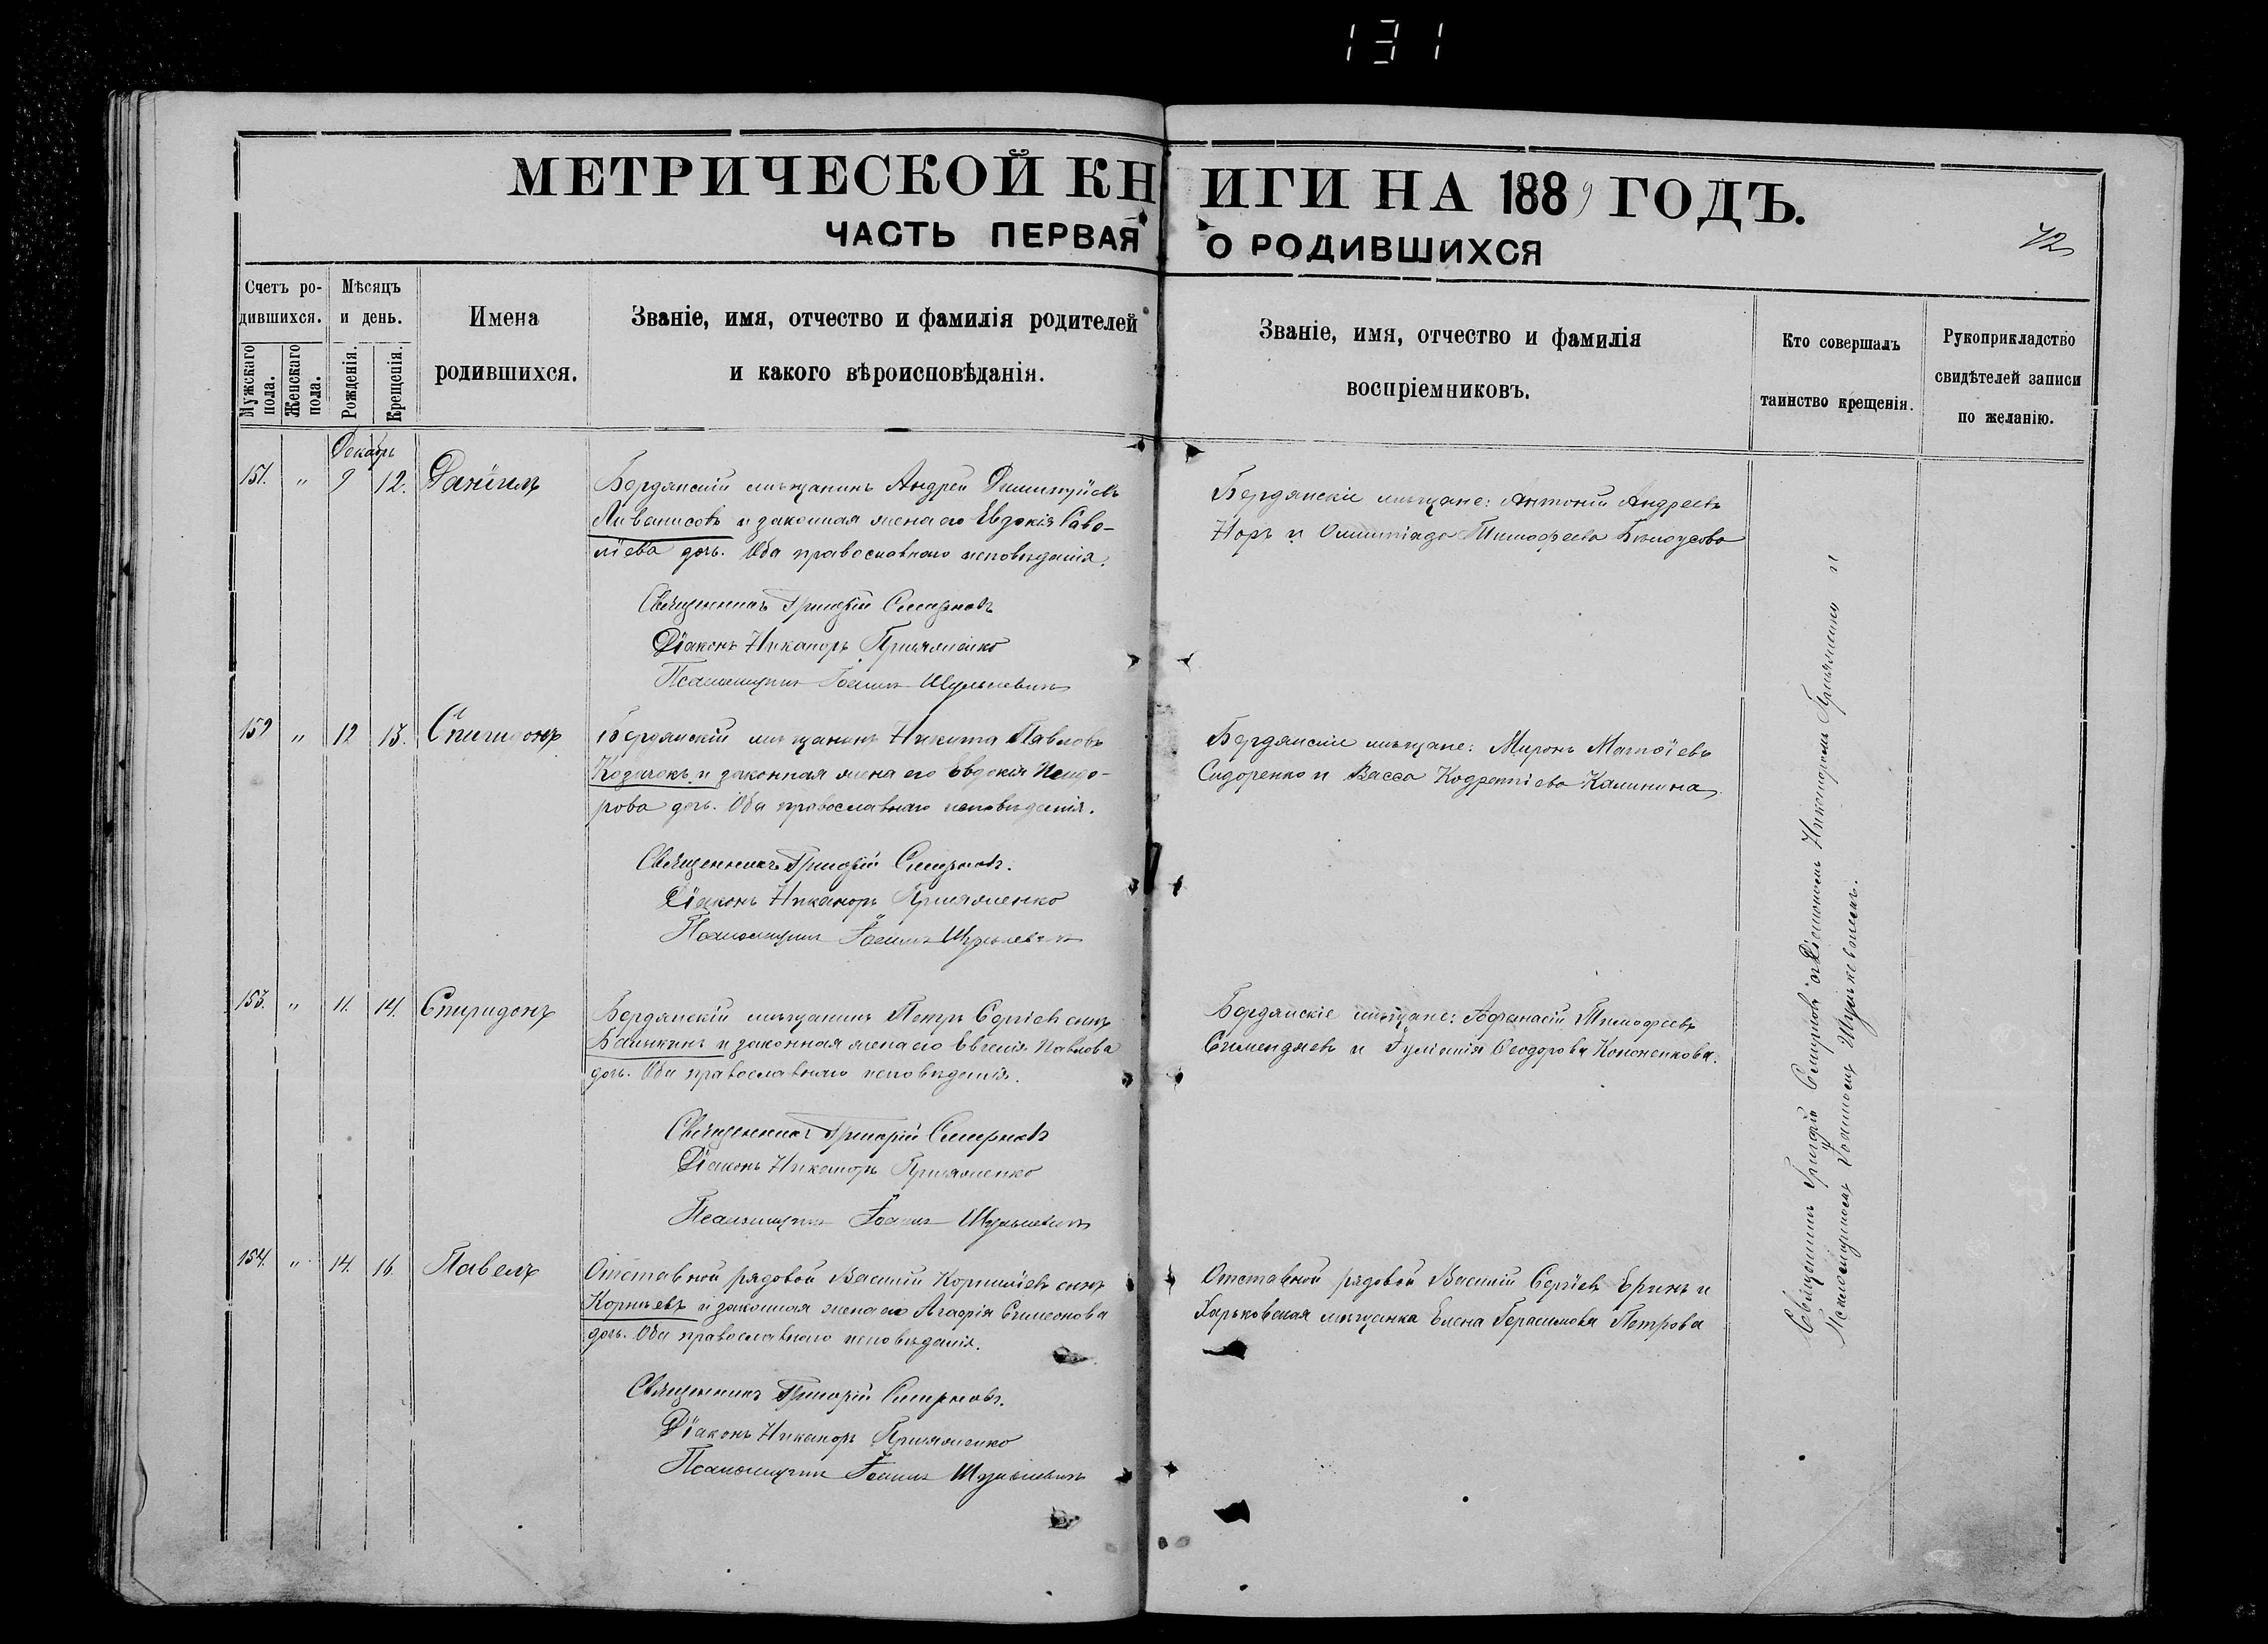 131
МЕТРИЧЕСКОЙ КНИГИ НА 1889 ГОДЪ.
ЧАСТЬ ПЕРВАЯ О РОДИВШИХСЯ
72
Счетъ ро-
дившихся.
Мужскаго пола.
Женскаго пола.
Мѣсяцъ
и день.
Рожденія.
Крещенія.
Имена
родившихся.
Званіе, имя, отчество и фамилія родителей
и какого вѣроисповѣданія.
Званіе, имя, отчество и фамилія
воспріемниковъ.
Кто совершалъ
таинство крещенія.
Рукоприкладство
свидѣтелей записи
по желанію.
Декабрь
151. " 9 12. Даніилъ
Бердянскій мѣщанинъ Андрей Димитріевъ
Ливанисовъ и законная жена его Евдокія Саве-
ліева дочь. Оба православнаго исповѣданія.
Священникъ Григорій Смирновъ
Діаконъ Никаноръ
Псаломщикъ Іоаннъ Шулькевичъ
Бердянскіе мѣщане: Антоній Андреевъ
и Олимпіада Тимофеева Бѣлоусова
152 " 12 13. Спиридонъ
Бердянскій мѣщанинъ Никита Павловъ
Козачокъ и законная жена его Евдокія Исидо-
рова дочь. Оба православнаго исповѣданія.
Священникъ Григорій Смирновъ.
Діаконъ Никаноръ
Псаломщикъ Іоаннъ Шулькевичъ
Бердянскіе мѣщане: Миронъ Матвіевъ
Сидоренко и Васса Кодратіева Калинина
153. " 11. 14. Спиридонъ
Бердянскій мѣщанинъ Петръ Сергіевъ сынъ
и законная жена его Евгенія Павлова
дочь. Оба православнаго исповѣданія.
Священникъ Григорій Смирновъ
Діаконъ Никаноръ
Псаломщикъ Іоаннъ Шулькевичъ
Бердянскіе мѣщане: Афанасій Тимофеевъ
и Іуліанія Ѳеодорова Кононенкова.
154. " 14. 16. Павелъ
Отставной рядовой Василій Корниліевъ сынъ
Корнѣевъ и законная жена его Агафія Симеонова
дочь. Оба православнаго исповѣданія.
Священникъ Григорій Смирновъ.
Діаконъ Никаноръ
Псаломщикъ Іоаннъ Шулькевичъ
Отставной рядовой Василій Сергіевъ Еринъ и
Харьковская мѣщанка Елена Герасимова Петрова
Священникъ Григорій Смирновъ съ Діакономъ Никаноромъ и
Псаломщикомъ Іоанномъ Шулькевичемъ.